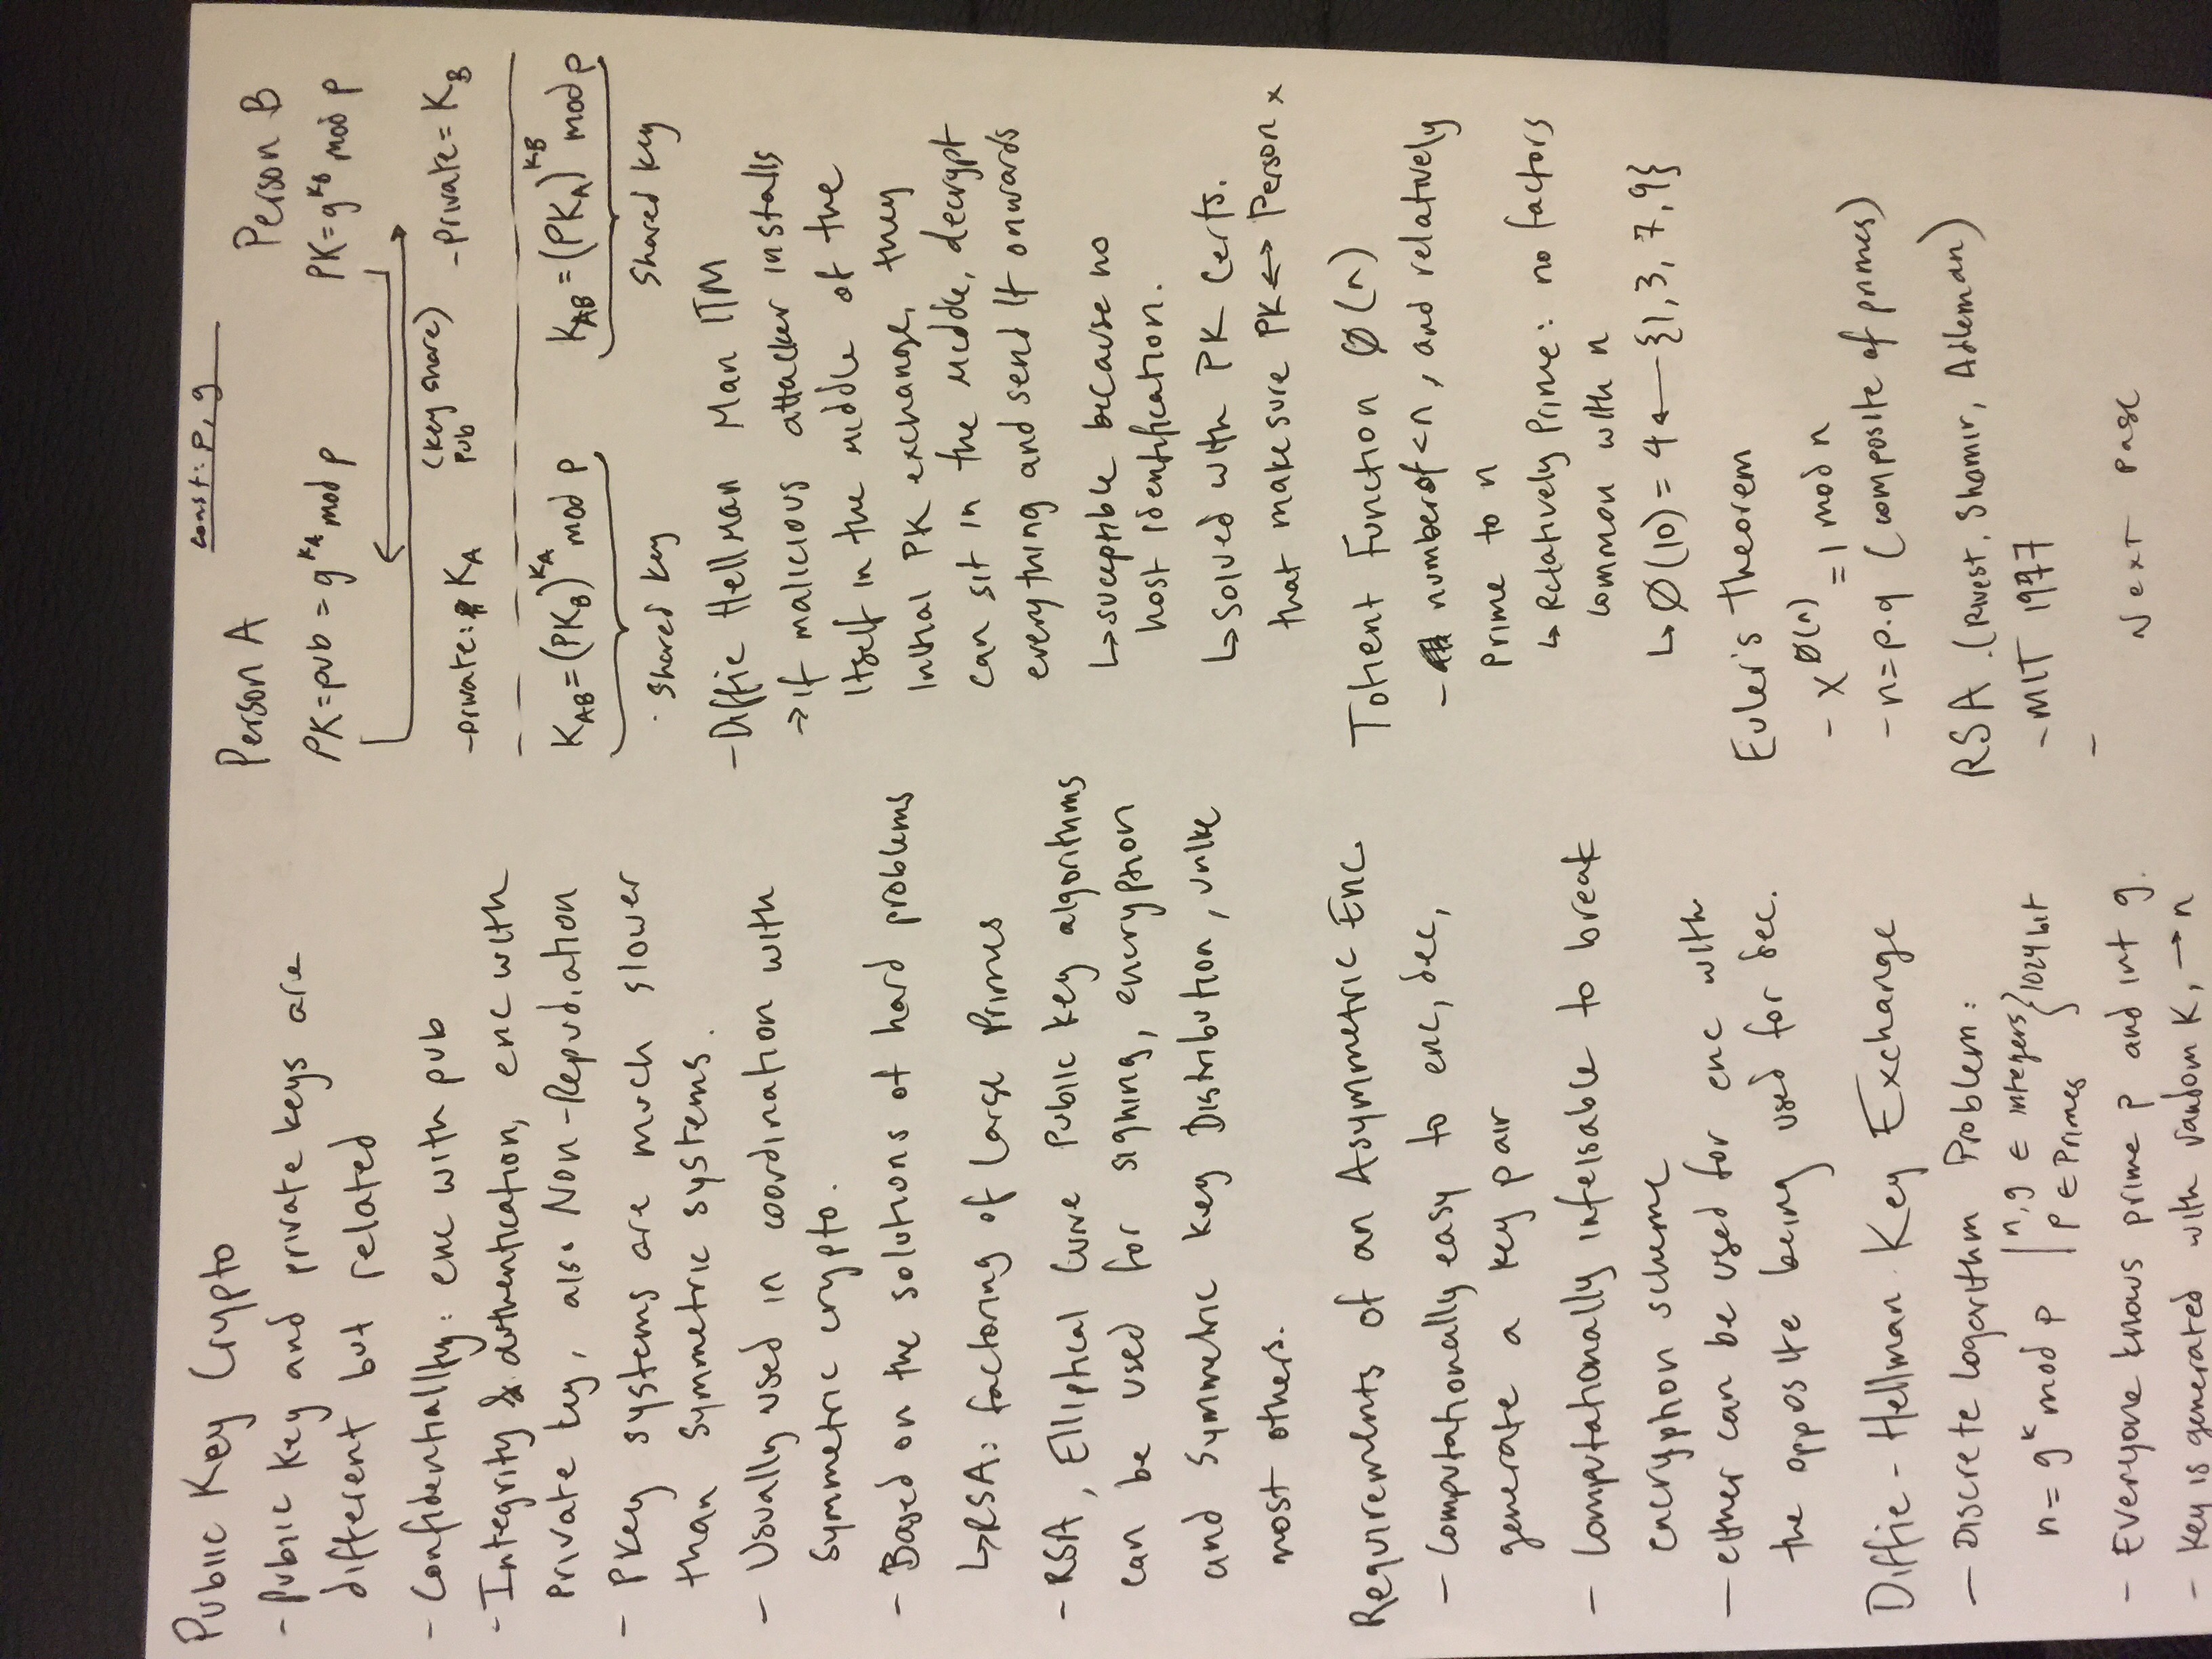 Public Key Crypto
- Public key and private keys are
different but related
- Confidentiallty: enc with pub
- Integrity & authentication, enc with
private key, also Non-Repudiation
- PKey systems are much slower
than symmetric systems.
- Usually used in coordination with
symmetric crypto.
- Based on the solutions of hard problems
↳RSA: factoring of large primes
- RSA, Elliptical Curve Public key algorithms
can be used for signing, encryption
and symmetric key Distribution, unlike
most others.
Requirements of an Asymmetric Enc.
- Computationally easy to enc, dec,
generate a key pair
- Computationally infeisable to break
encryption scheme
- either can be used for enc with
the opposite being used for dec.
Diffie-Hellman Key Exchange
- Discrete logarithm Problem:
n = g^k mod p | n, g ∈ integers } 1024 bit
p ∈ Primes
- Everyone knows prime p and int g.
- Key is generated with random K, → n
const: p, g
Person A Person B
PK = pub = g^KA mod p PK = g^KB mod p
(key share)
pub
- private: KA - Private = KB
K_AB = (PK_B)^KA mod p K_AB = (PK_A)^KB mod p
Shared key Shared key
- Diffie Hellman Man ITM
→ if malicious attacker installs
itself in the middle of the
initial PK exchange, they
can sit in the middle, decrypt
everything and send it onwards
↳ suceptible because no
host identification.
↳ solved with PK Certs.
that make sure PK ↔ Person x
Totient Function Ø(n)
- number of < n, and relatively
prime to n
↳ Relatively Prime: no factors
common with n
↳ Ø(10) = 4 ← {1, 3, 7, 9}
Euler's Theorem
- x^Ø(n) = 1 mod n
- n = p·q (composite of primes)
RSA (Rivest, Shamir, Adleman)
- MIT 1977
-
Next page